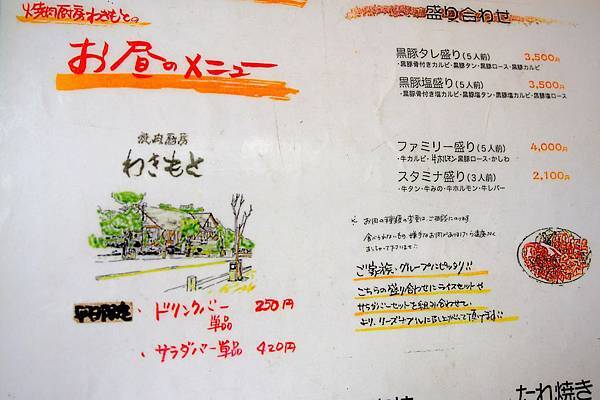 焼肉厨房わきもとの
お昼のメニュー
焼肉厨房
わきもと
平日限定
・ドリンクバー 250円
単品
・サラダバー単品 420円
盛り合わせ
黒豚タレ盛り(5人前) 3,500円
・黒豚骨付きカルビ・黒豚タン・黒豚ロース・黒豚カルビ
黒豚塩盛り(5人前) 3,500円
・黒豚骨付き塩カルビ・黒豚塩タン・黒豚塩カルビ・黒豚塩ロース
ファミリー盛り(5人前) 4,000円
・牛カルビ・牛ホルモン・黒豚ロース・かしわ
スタミナ盛り(3人前) 2,100円
・牛タン・牛みの・牛ホルモン・牛レバー
※ お肉の種類の変更は、ご相談にのります
食べられないもの、嫌いなお肉がありましたら遠慮なく
おっしゃって下さいませ
ご家族・グループにピッタリ!!
こちらの盛り合わせにライスセットや
サラダバーセットを組み合わせて、
より、リーズナブルにお召し上がって頂けます!!
たれ焼き